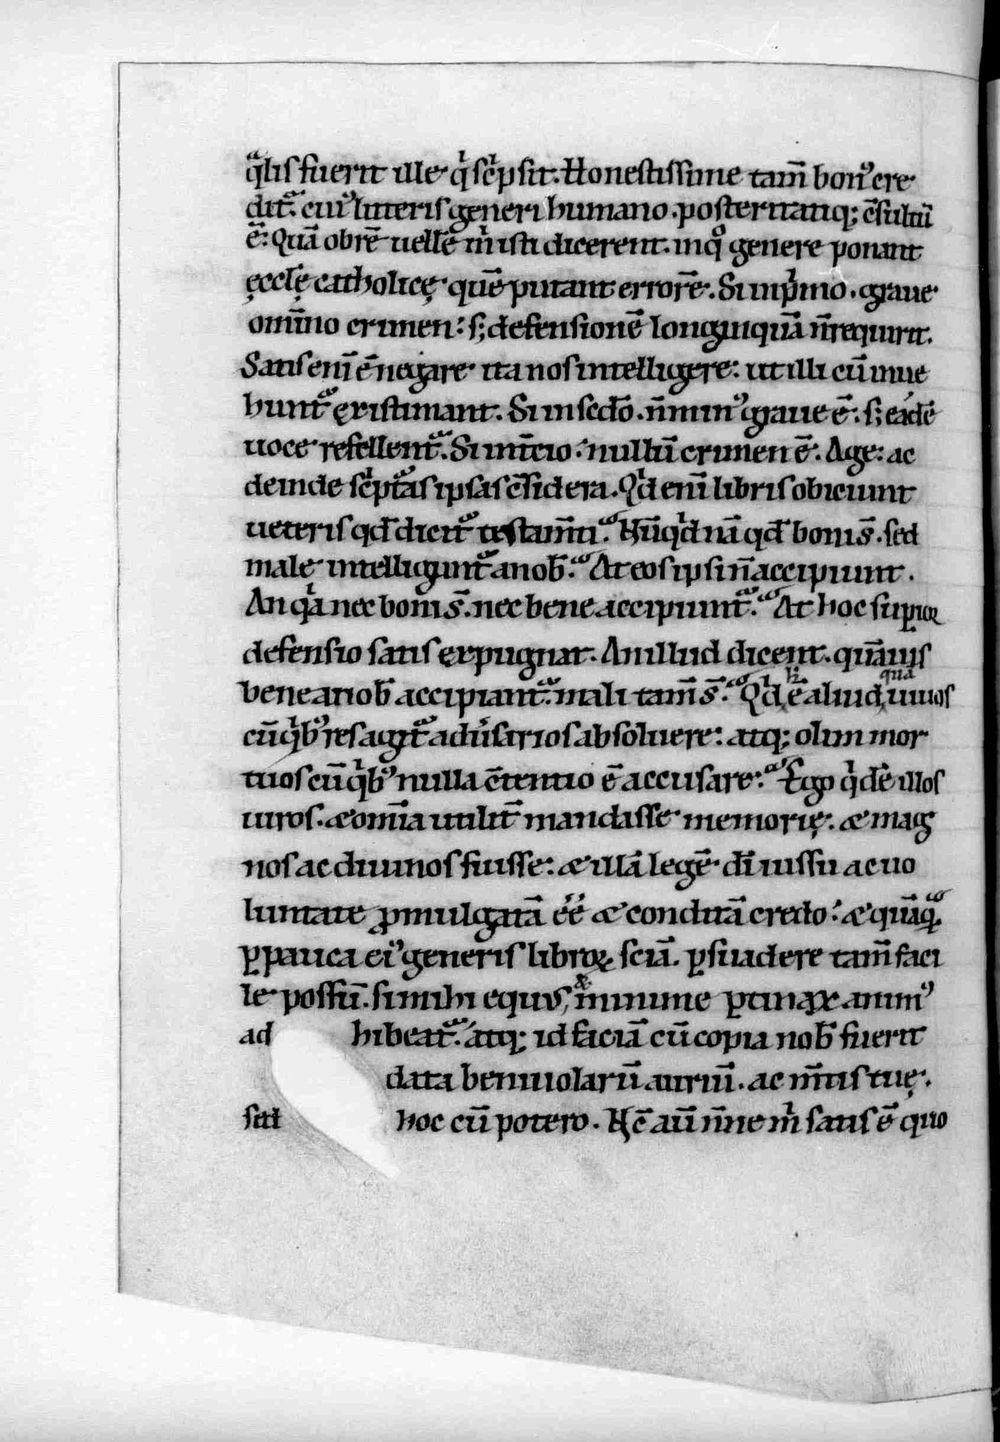 q̄lis fuerit ille q̇ sc̄psit. Honestissime tam̄ bon᾽ cre
dit᷑. cui᾽ litteris generi humano posteritatiq; c̄sultū
ē: Quā obrē uellē m̄ isti dicerent. inq̊ genere ponant
ęcclę catholicę quē putant errorē. Si inp̄mo. graue
omīno crimen: s; defensionē longinquā n̄ requirit.
Satis enī ē negare ita nos intelligere: ut illi cū inue
hunt᷑ ęxistimant. Si in sc̄do. n̄ min᾽ graue ē. s; eadē
uoce refellent᷑. Si int̄cio. nullū crimen ē. Age: ac
deinde sc̄pt᷑as ipsas c̄sidera. Qd̄ enī libris obiciunt
ueteris qd̄ dicit᷑ testam̄ti. Nūq̇d nā qd̄ boni s̄. sed
male intelligunt᷑ a nob̄. At eos ipsi n̄ accipiunt.
An q̇a nec boni s̄. nec bene accipiunt᷑. At hoc supioꝝ
defensio satis ęxpugnat. An illud dicent. quāuis
bene a nob̄ accipiant᷑. mali tam̄ s̄. Qd̄ ē aliud, quā uiuos
cū q̇b᾽ res agit᷑ adu̇sarios absoluere: atq; olim mor
tuos cū q̇b᾽ nulla c̄tentio ē accusare. Ego q̇dē illos
uiros. & om̄ia utilit̄ mandasse memorię. & mag
nos ac diuinos fuisse: & illā legē dī iussu ac uo
luntate ꝓmulgatā ēē & conditā credo: & quāꝗ᷑
ꝑpauca ei᾽ generis libroꝝ sciā. ꝑsuadere tam̄ faci
le possū. si mihi equus, & minime ꝑtinax anim᾽
ad hibeat᷑. atq; id faciā cū copia nob̄ fuerit
data beniuolarū auriū. ac m̄tis tuę.
sed hoc cū potero. Nc̄ aū n̄ne m̄ satis ē quo